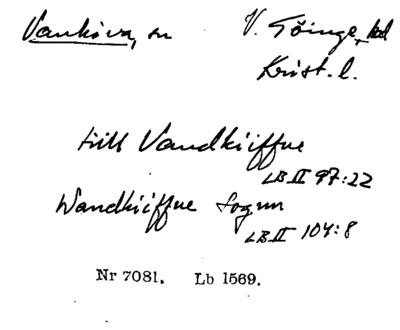 Vankiva, sn V. Göinge hd
Krist. l.
till Vandkiiffue
LB II 97:22
Wandkiiffue Sognn
LB II 104:8
Nr 7081. Lb 1569.